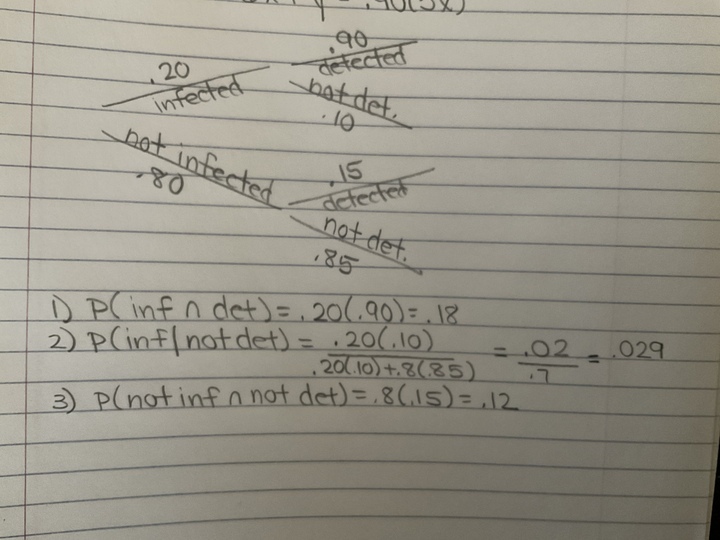 .90
detected
.20
infected
not det.
.10
not infected
.80
.15
detected
not det.
.85
1) P(inf ∩ det) = .20(.90) = .18
2) P(inf|not det) = .20(.10) / .20(.10)+.8(.85) = .02/.7 = .029
3) P(not inf ∩ not det) = .8(.15) = .12